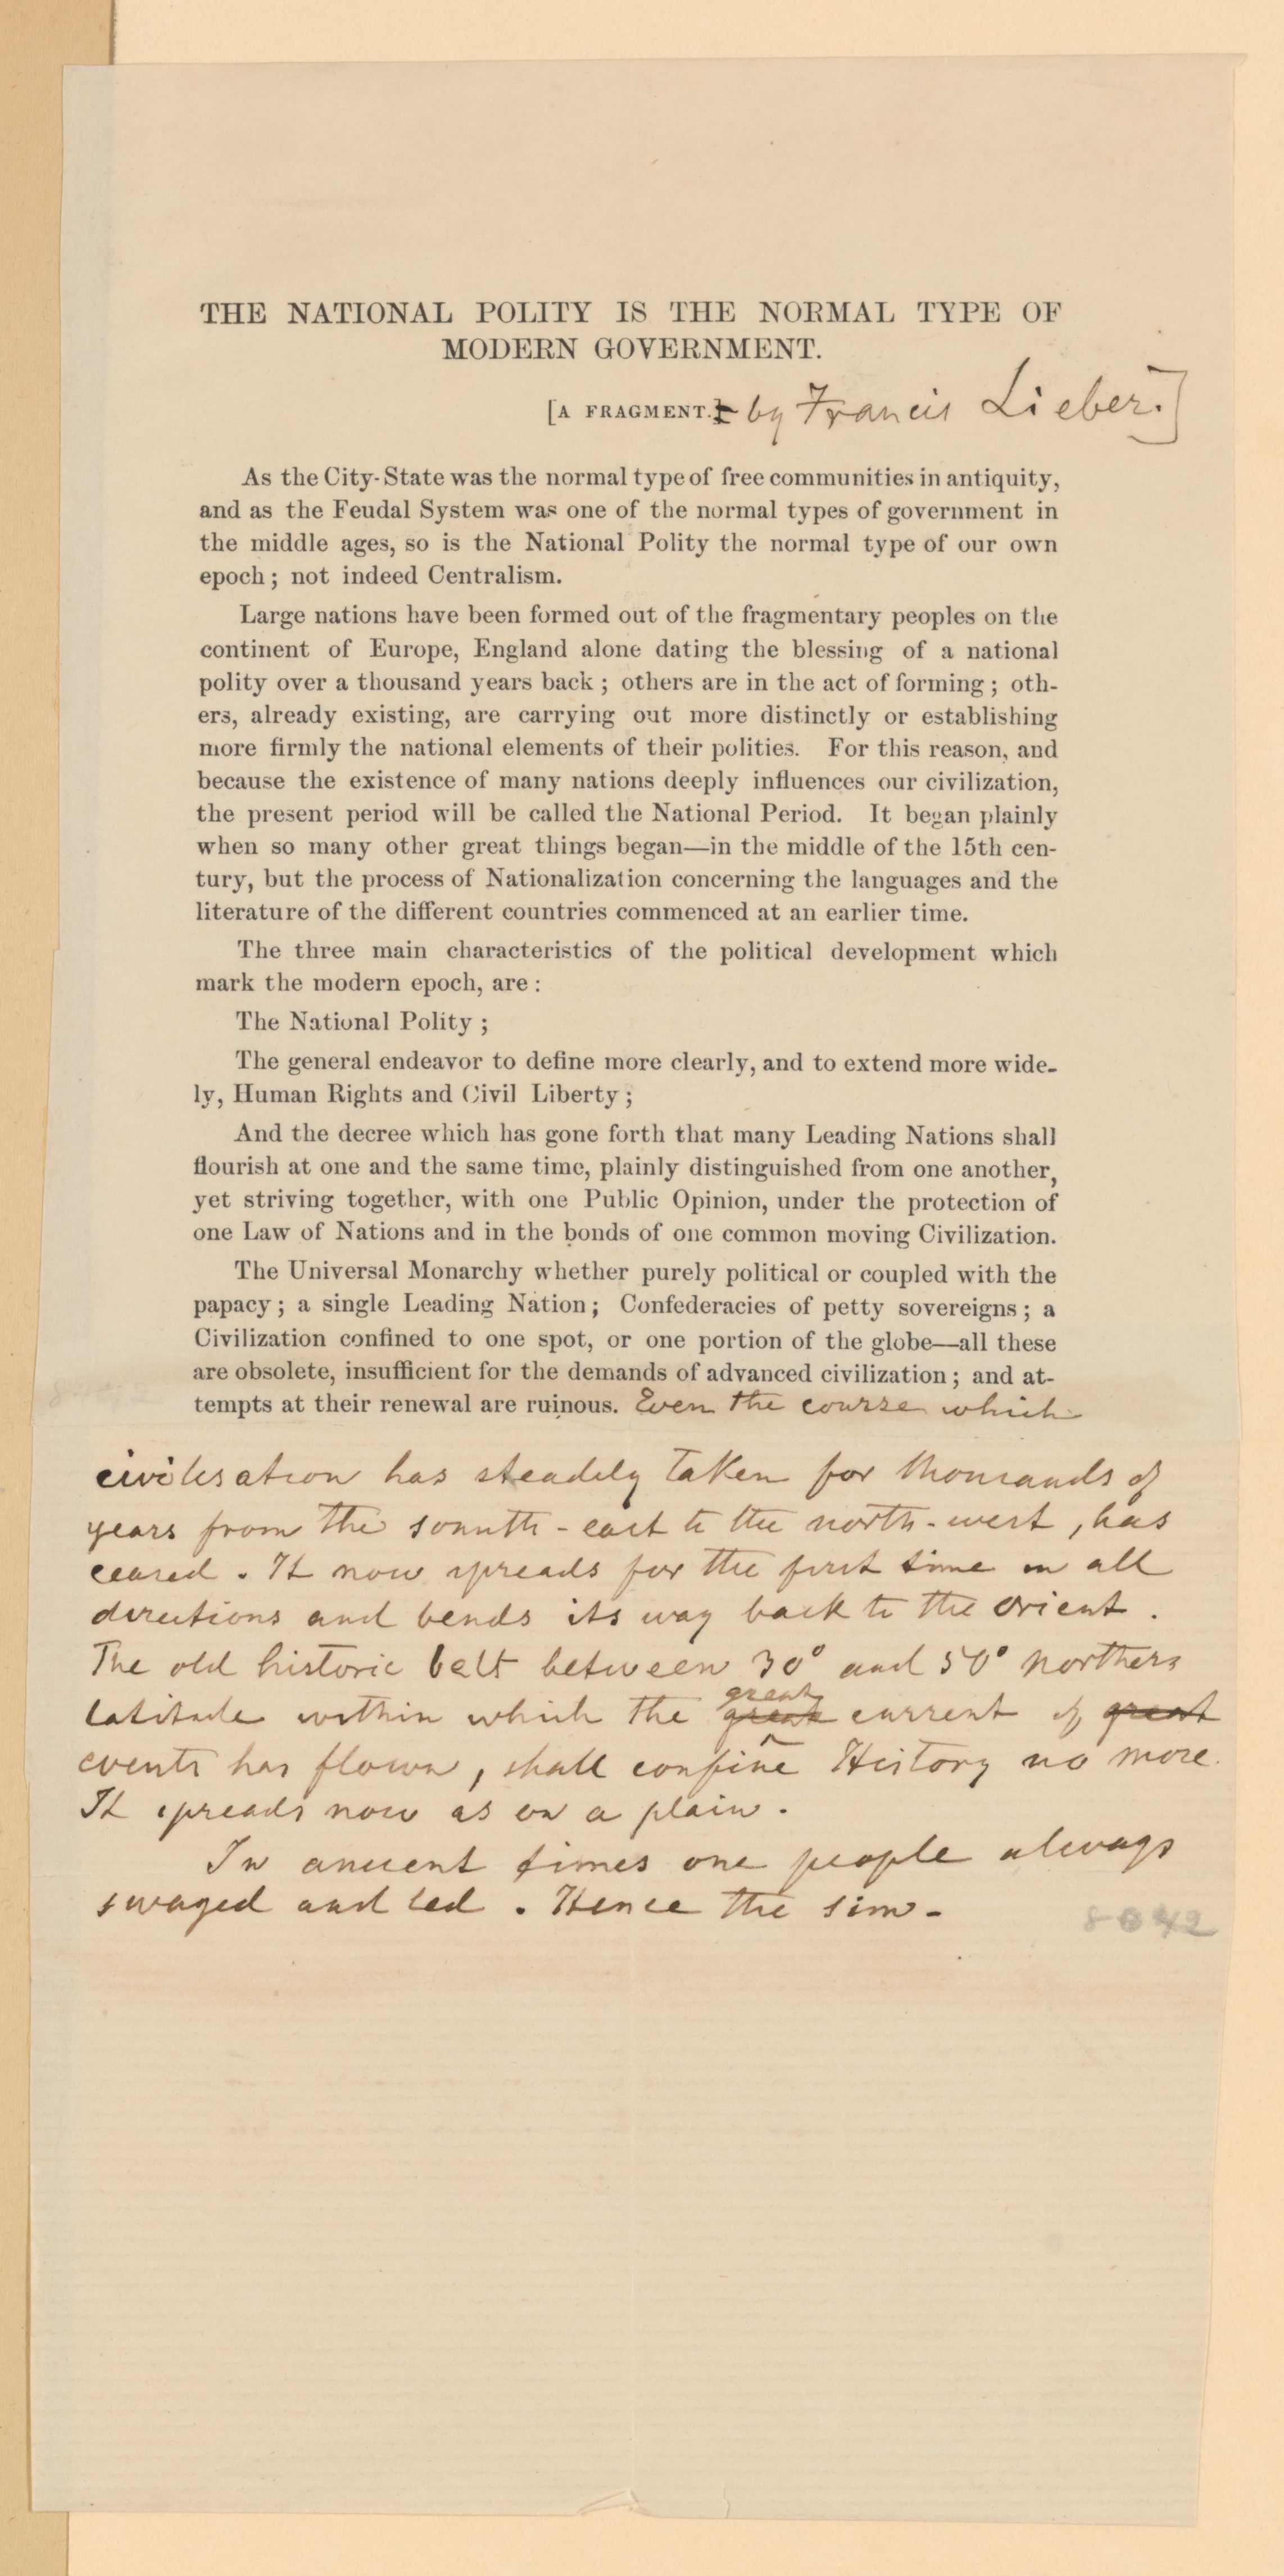 THE NATIONAL POLITY IS THE NORMAL TYPE OF
MODERN GOVERNMENT.
[A FRAGMENT.] by Francis Lieber.]
As the City-State was the normal type of free communities in antiquity,
and as the Feudal System was one of the normal types of government in
the middle ages, so is the National Polity the normal type of our own
epoch; not indeed Centralism.
Large nations have been formed out of the fragmentary peoples on the
continent of Europe, England alone dating the blessing of a national
polity over a thousand years back; others are in the act of forming; oth-
ers, already existing, are carrying out more distinctly or establishing
more firmly the national elements of their polities. For this reason, and
because the existence of many nations deeply influences our civilization,
the present period will be called the National Period. It began plainly
when so many other great things began—in the middle of the 15th cen-
tury, but the process of Nationalization concerning the languages and the
literature of the different countries commenced at an earlier time.
The three main characteristics of the political development which
mark the modern epoch, are:
The National Polity;
The general endeavor to define more clearly, and to extend more wide-
ly, Human Rights and Civil Liberty;
And the decree which has gone forth that many Leading Nations shall
flourish at one and the same time, plainly distinguished from one another,
yet striving together, with one Public Opinion, under the protection of
one Law of Nations and in the bonds of one common moving Civilization.
The Universal Monarchy whether purely political or coupled with the
papacy; a single Leading Nation; Confederacies of petty sovereigns; a
Civilization confined to one spot, or one portion of the globe—all these
are obsolete, insufficient for the demands of advanced civilization; and at-
tempts at their renewal are ruinous. Even the course which
civilisation has steadily taken for thousands of
years from the sounth-east to the north-west, has
ceased. It now spreads for the first time in all
directions and bends its way back to the Orient.
The old historic belt between 30° and 50° northern
great
latitude within which the great current of great
events has flown, shall confine History no more.
It spreads now as on a plain.
In ancient times one people always
swayed and led. Hence the sim-
8042